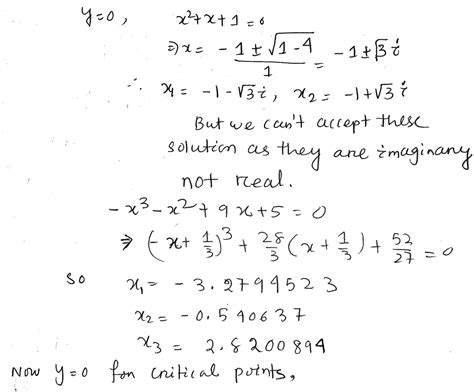 y=0, x²+x+1=0
⇒ x = - 1±√1-4 / 1 = -1±√3 i
∴ x₁ = -1-√3 i, x₂ = -1+√3 i
But we can't accept these
solution as they are imaginary
not real.
-x³-x²+9x+5=0
⇒ (-x+1/3)³ + 28/3 (x+1/3) + 52/27 = 0
So x₁ = -3.2799523
x₂ = -0.540637
x₃ = 2.8200894
Now y=0 for critical points,